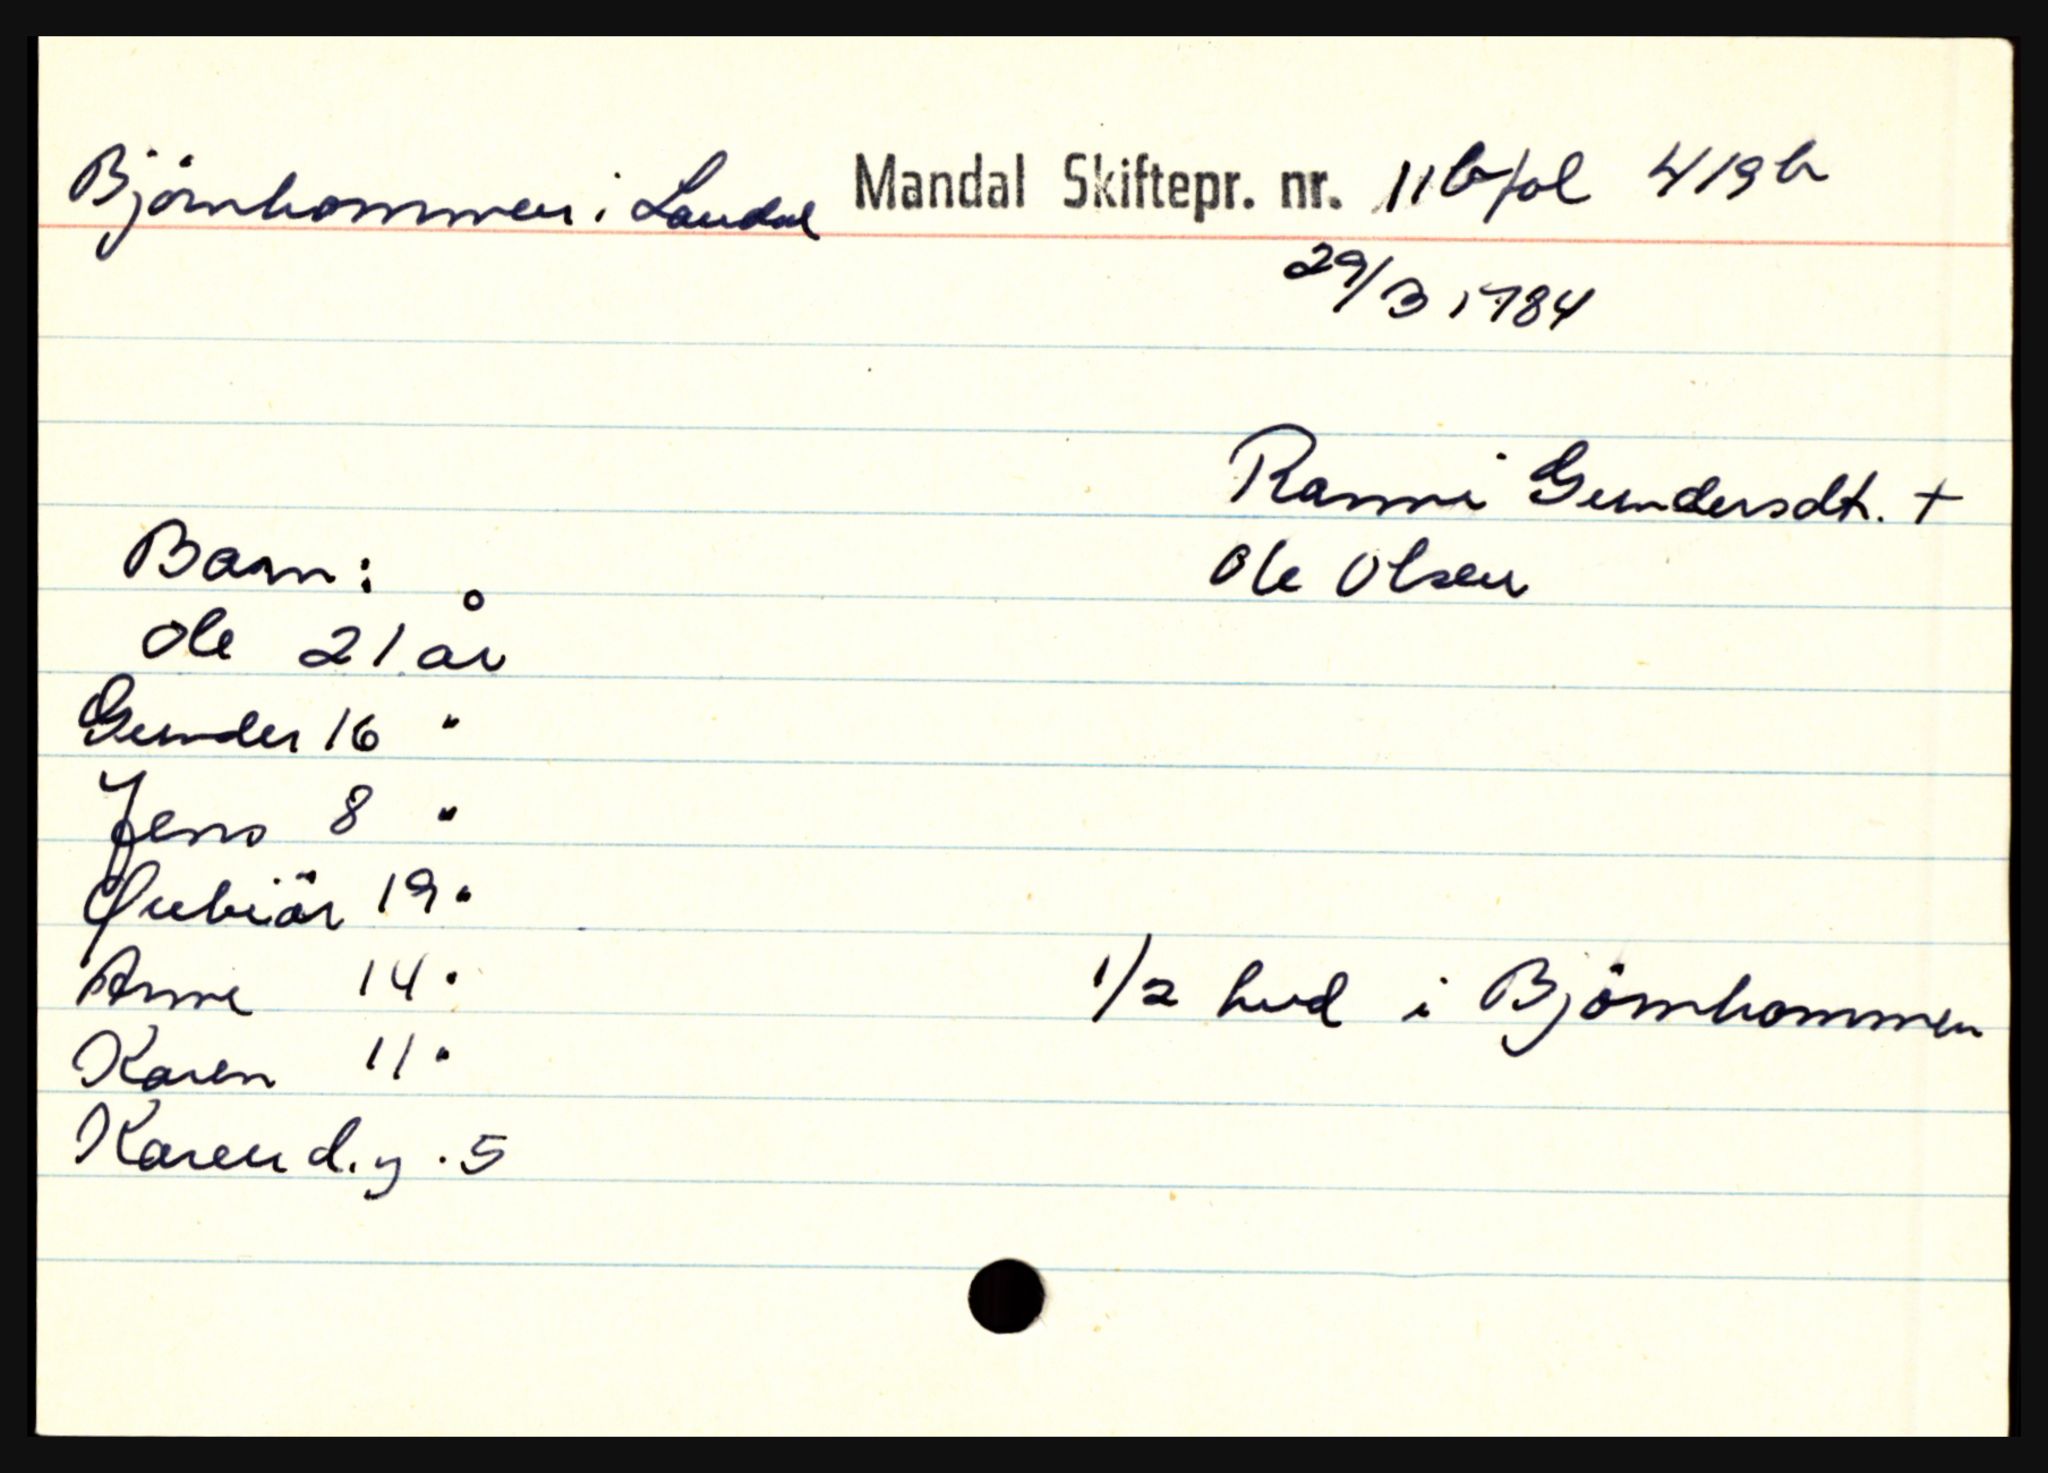 Björnhommen i Laudal Mandal Skiftepr. nr. 11b fol 419b
29/3 1784
Ranni Gundersdt. +
Barn: Ole Olsen
Ole 21 år
Gunder 16 "
Jens 8 "
Gubiär 19 "
Anne 14 "
Karen 11 "
1/2 hud i Björnhommen
Karen d.y. 5